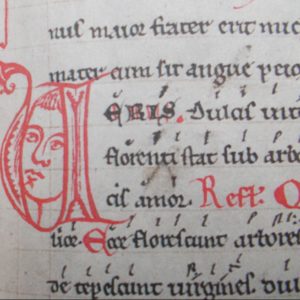 nus maior frater erit mic
mater cum sit angue peio
VERIS. Dulcis in t
florenti stat sub arbo
cis amor. Refl. Q
lior. Ecce florescunt arbores
de tepescunt uirgines